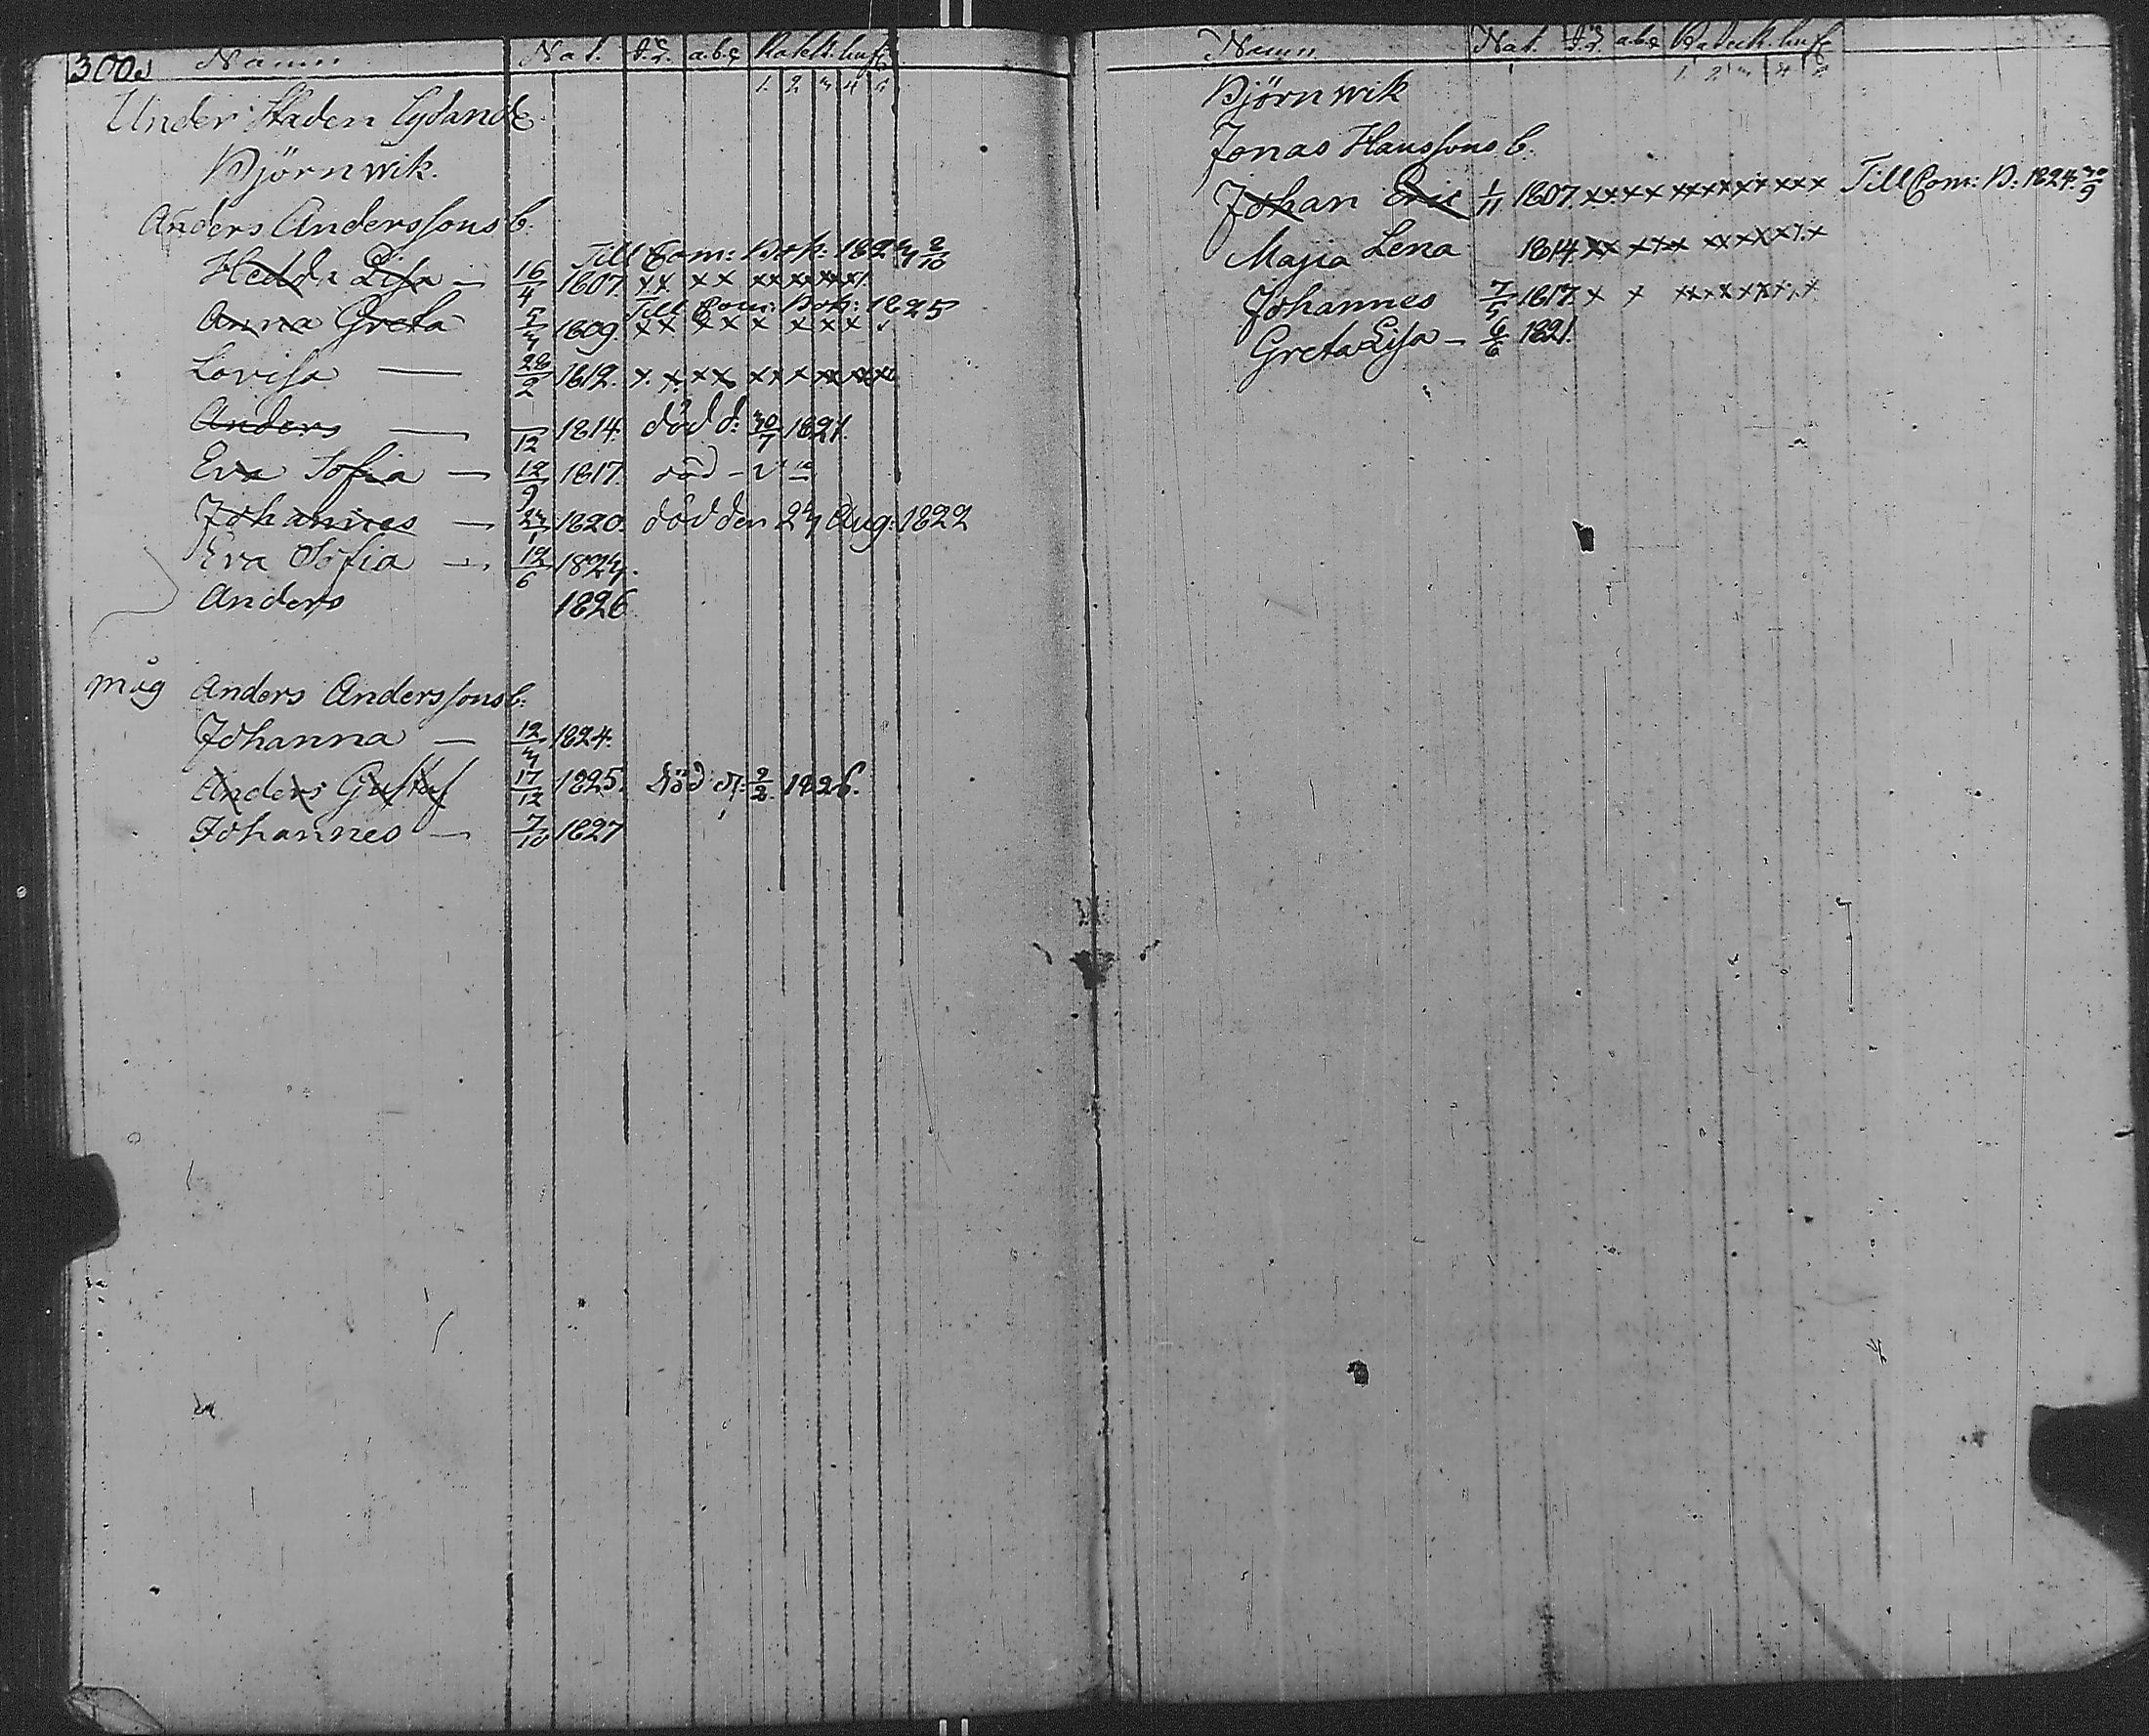 300. Namn Nat. I.L. a.b.c Katek. husf.
1. 2 3 4 5
Under Staden Lydande.
Björnwik.
Anders Anderssons b:
Till Com: Bok: 1824 2/10
Hedda Lisa — 16/4 1807. xx xx xxxxxxx
Till Com: Bok: 1825
Anna Greta 5/4 1809. xx xxx xxx
Lovisa — 28/2 1812. x. x. xx xxx xxxx
Anders — /12 1814. död d: 30/7 1821.
Eva Sofia — 12/9 1817. död
Johannes — 24/1 1820. död den 24 Aug: 1822
Eva Sofia — 12/6 1824.
Anders 1826
måg Anders Anderssons b:
Johanna — 12/4 1824.
Anders Gustaf 17/12 1825. död d: 2/2 1826.
Johannes — 7/10 1827
Namn Nat. I.L. a.b.c Katek. husf
1. 2 3 4 5
Björnwik
Jonas Hanssons b:
Johan Eric 1/11 1807. xxxx xxxxxxx xxx Till Com: B: 1824. 30/9
Majia Lena 1814 xx xxx xxxxxxx
Johannes 7/5 1817. x x xxxxxxxx
Greta Lisa — 6/6 1821.